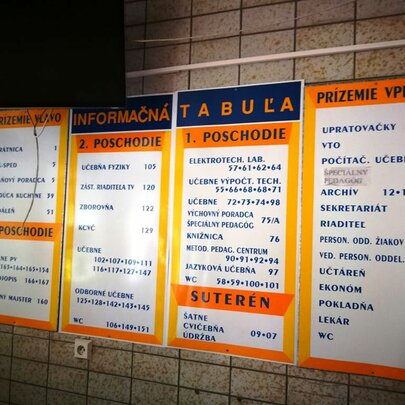 PRÍZEMIE VĽAVO
1
5
35
39
51
POSCHODIE
163•164•165•154
166•167
160
INFORMAČNÁ
2. POSCHODIE
UČEBŇA FYZIKY 105
ZÁST. RIADITEĽA TV 120
ZBOROVŇA 122
KCVČ 129
UČEBNE
102•107•109•111
116•117•127•147
ODBORNÉ UČEBNE
125•128•142•143•145
WC 106•149•151
TABUĽA
1. POSCHODIE
ELEKTROTECH. LAB.
57•61•62•64
UČEBNE VÝPOČT. TECH.
55•66•68•68•71
UČEBNE 72•73•74•98
VÝCHOVNÝ PORADCA
ŠPECIÁLNY PEDAGÓG 75/A
KNIŽNICA 76
METOD. PEDAG. CENTRUM
90•91•92•94
JAZYKOVÁ UČEBŇA 97
WC 58•59•100•101
SUTERÉN
ŠATNE
CVIČEBŇA 09•07
ÚDRŽBA
PRÍZEMIE
UPRATOVAČKY
VTO
POČÍTAČ.
ŠPECIÁLNY
PEDAGÓG
ARCHÍV
SEKRETARIÁT
RIADITEĽ
PERSON. ODD. ŽIAKOV
VED. PERSON. ODDEL.
UČTÁREŇ
EKONÓM
POKLADŇA
LEKÁR
WC